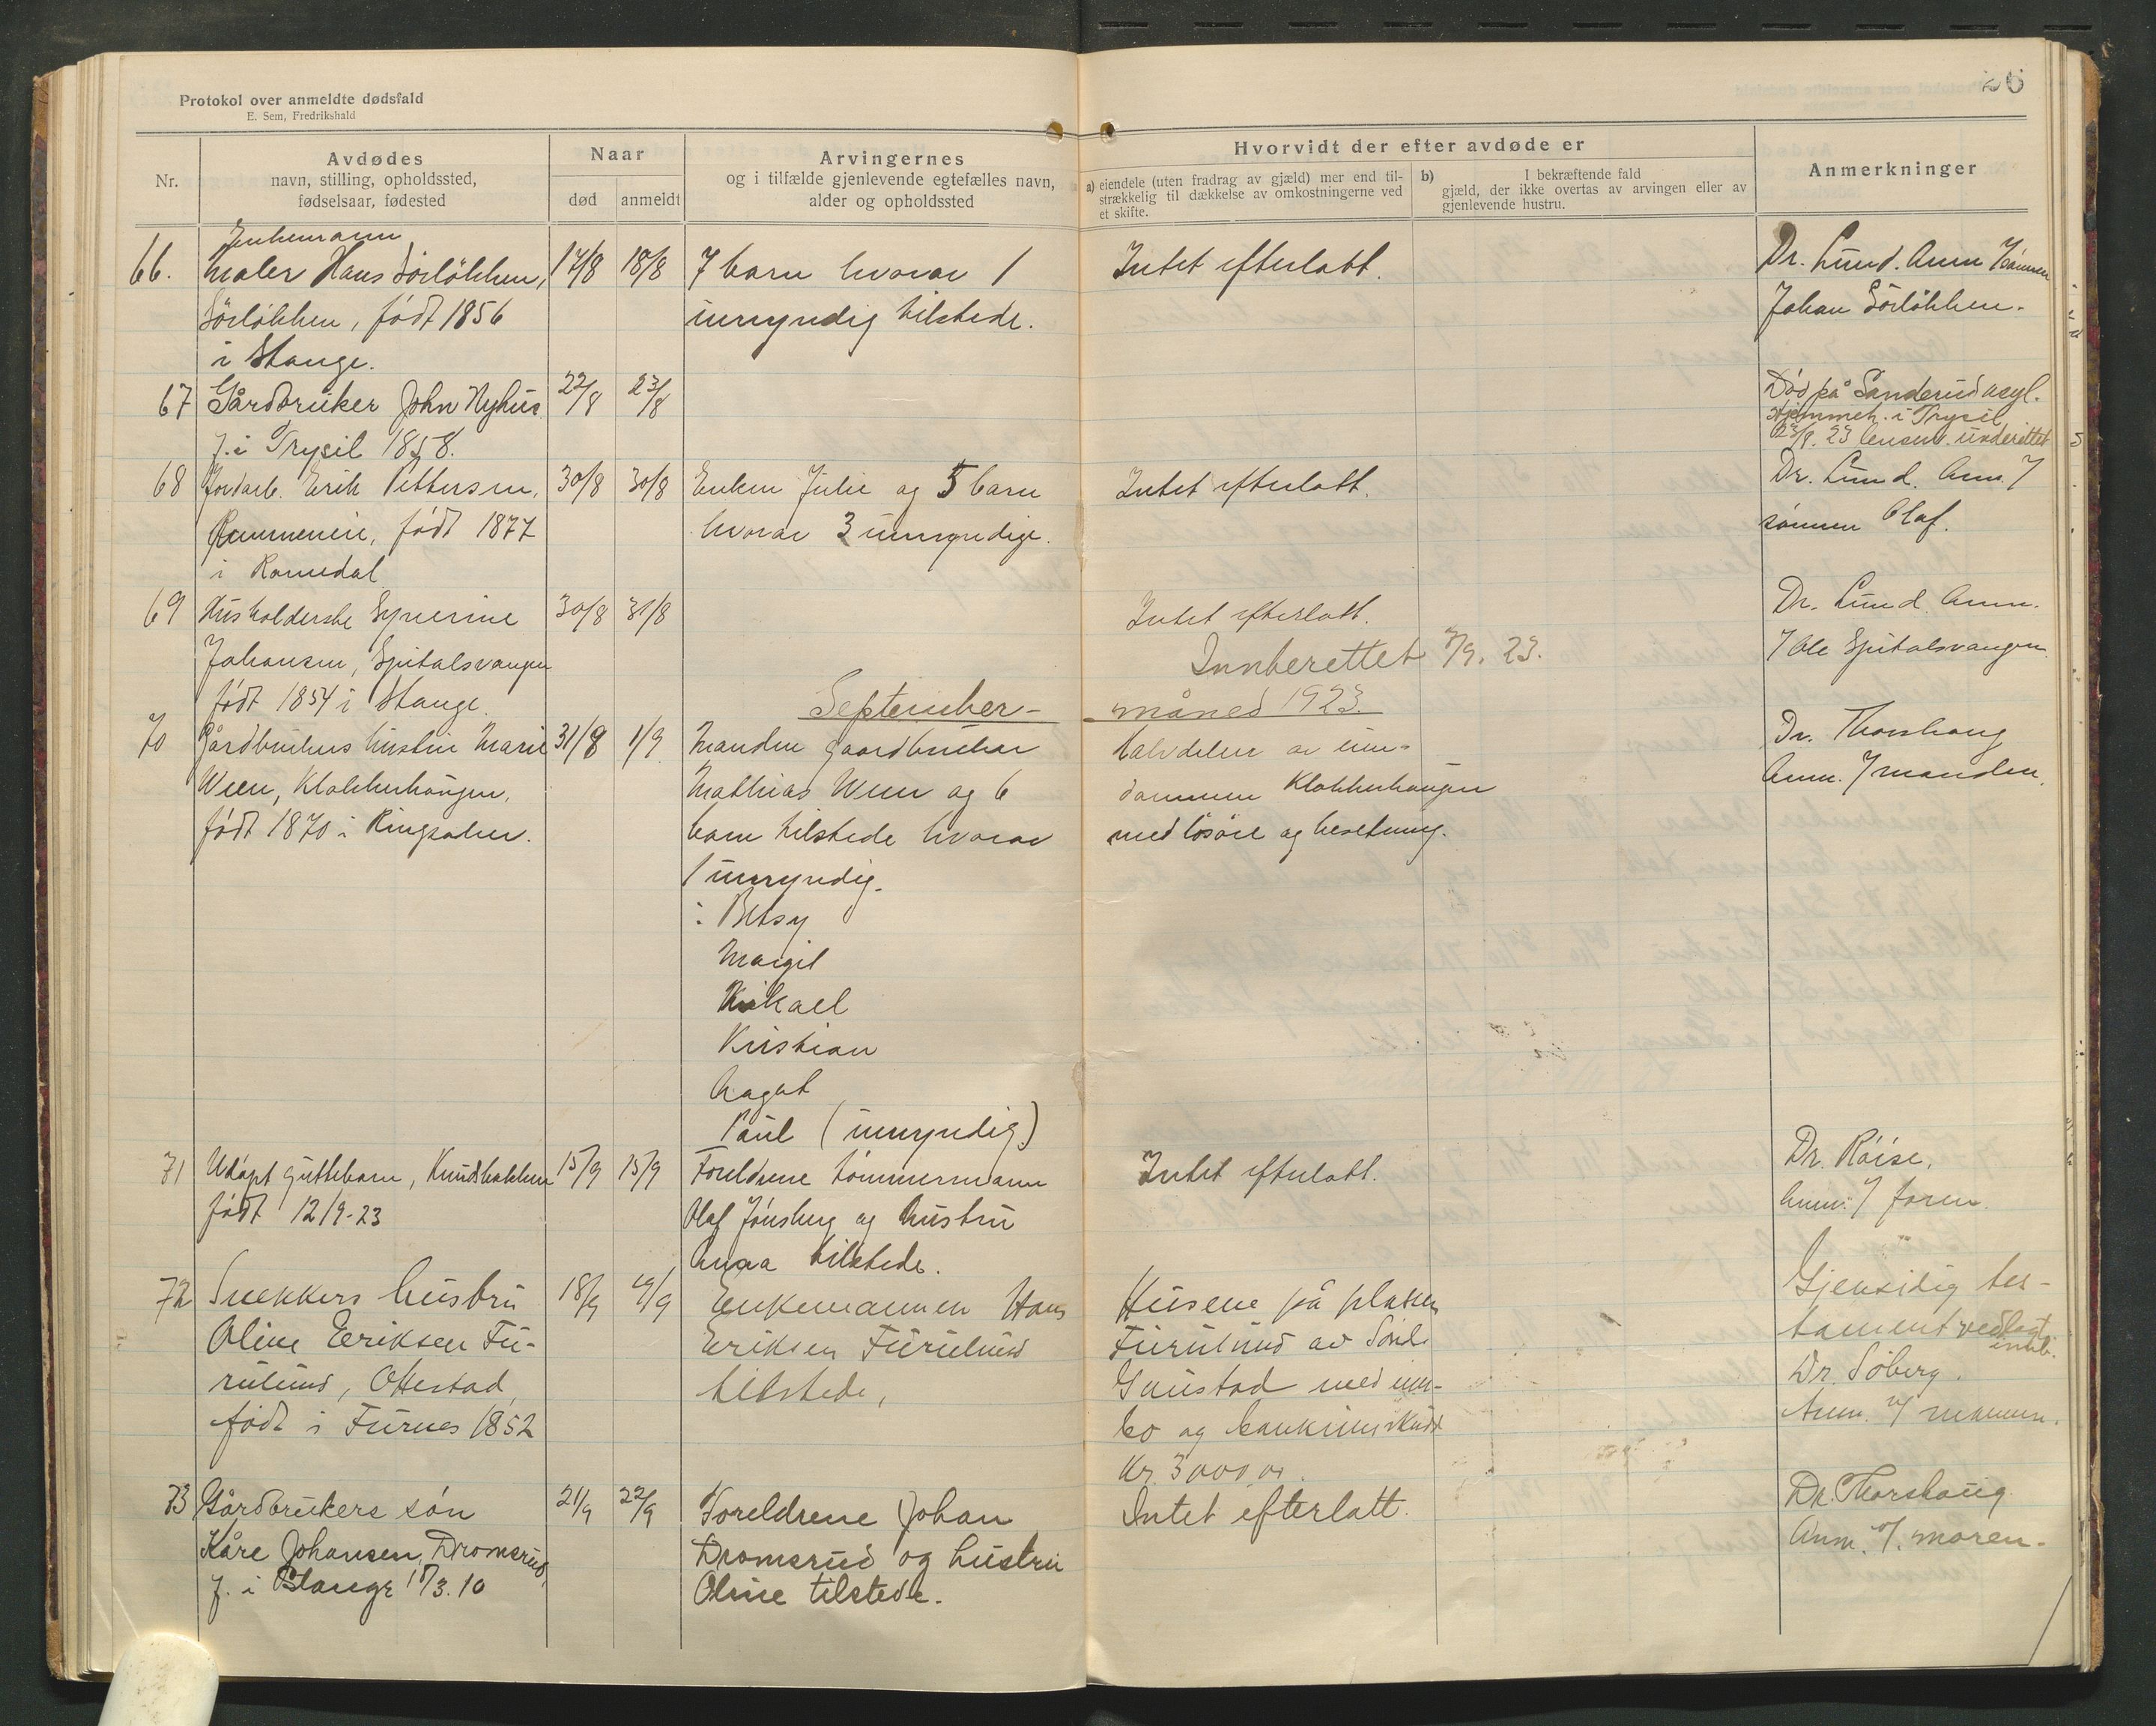 Protokol over anmeldte dødsfald
E. Sem, Fredrikshald
26
Nr.
Avdødes
navn, stilling, opholdssted,
fødselsaar, fødested
Naar
død
anmeldt
Arvingernes
og i tilfælde gjenlevende egtefælles navn,
alder og opholdssted
Hvorvidt der efter avdøde er
a) eiendele (uten fradrag av gjæld) mer end til-
strækkelig til dækkelse av omkostningerne ved
et skifte.
b) I bekræftende fald
gjæld, der ikke overtas av arvingen eller av
gjenlevende hustru.
Anmerkninger
Enkemann
66. Maler Hans Sörlökken, 17/8 18/8 7 barn hvorav 1 Intet efterlatt. Dr. Lund. Anm. 7/ sönnen
Sörlökken, födt 1856 umyndig tilstede. Johan Sörlökken.
i Stange.
67 Gårdbruker John Nyhus 22/8 23/8 Död på Sanderud asyl.
Hjemmeh. i Trysil
f. i Trysil 1858. 23/8. 23 lensm. underettet
68 Jordarb. Erik Pettersen, 30/8 30/8 Enken Julie og 5 barn Intet efterlatt. Dr. Lund. Anm. 7/
födt 1877 hvorav 3 umyndige. sönnen Olaf.
i Romedal
69 Husholderske Syverine 30/8 31/8 Intet efterlatt. Dr. Lund. Anm.
Johansen, Spitalsvangen Innberettet 7/9. 23. 7/ Ole Spitalsvangen
födt 1854 i Stange.
September- måned 1923.
70 Gårdbrukers hustru Marie 31/8 1/9 Manden gaardbruker Halvdelen av eien- Dr. Thorshaug
Ween, Klokkerhaugen, Mathias Ween og 6 dommen Klokkerhaugen Anm. 7/ manden.
födt 1870 i Ringsaker. barn tilstede hvorav med lösöre og besetning.
1 umyndig.
: Betsy
Margit
Mikael
Kristian
Aagot
Paul (umyndig)
71 Udöpt guttebarn, Knudsbakken 15/9 15/9 Foreldrene tömmermann Intet efterlatt. Dr. Röise.
födt 12/9-23 Olaf Jönsberg og hustru Anm. 7/ faren.
Anna tilstede.
72 Snekkers hustru 18/9 19/9 Enkemannen Hans Husene på plassen Gjensidig tes-
Oline Eriksen Fu- Eriksen Furulund Furulund av Söndr tament vedlagt
rulund, Ottestad, tilstede, Gaustad med inn- Dr. Söberg.
födt i Furnes 1852 bo og bankinnskudd Anm. v/ mannen.
Kr. 3000,00.
73 Gårdbrukers sön 21/9 22/9 Foreldrene Johan Intet efterlatt. Dr. Thorshaug
Kåre Johansen, Dromsrud, Dromsrud og hustru Anm. v/. moren.
f. i Stange 18/3. 10 Oline tilstede.